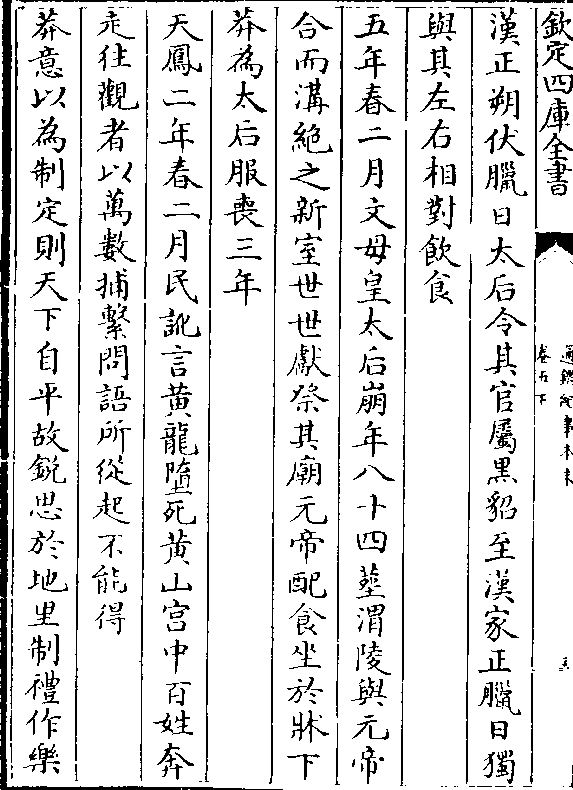 欽定四庫全書
通鑑紀事本末
卷五下
漢正朔伏臘日太后令其官屬黑貂至漢家正臘日獨
與其左右相對飲食
五年春二月文母皇太后崩年八十四塟渭陵與元帝
合而溝絶之新室世世獻祭其廟元帝配食坐於牀下
莽為太后服喪三年
天鳳二年春二月民訛言黄龍墮死黄山宫中百姓奔
走往觀者以萬數捕繫問語所從起不能得
莽意以為制定則天下自平故鋭思於地里制禮作樂